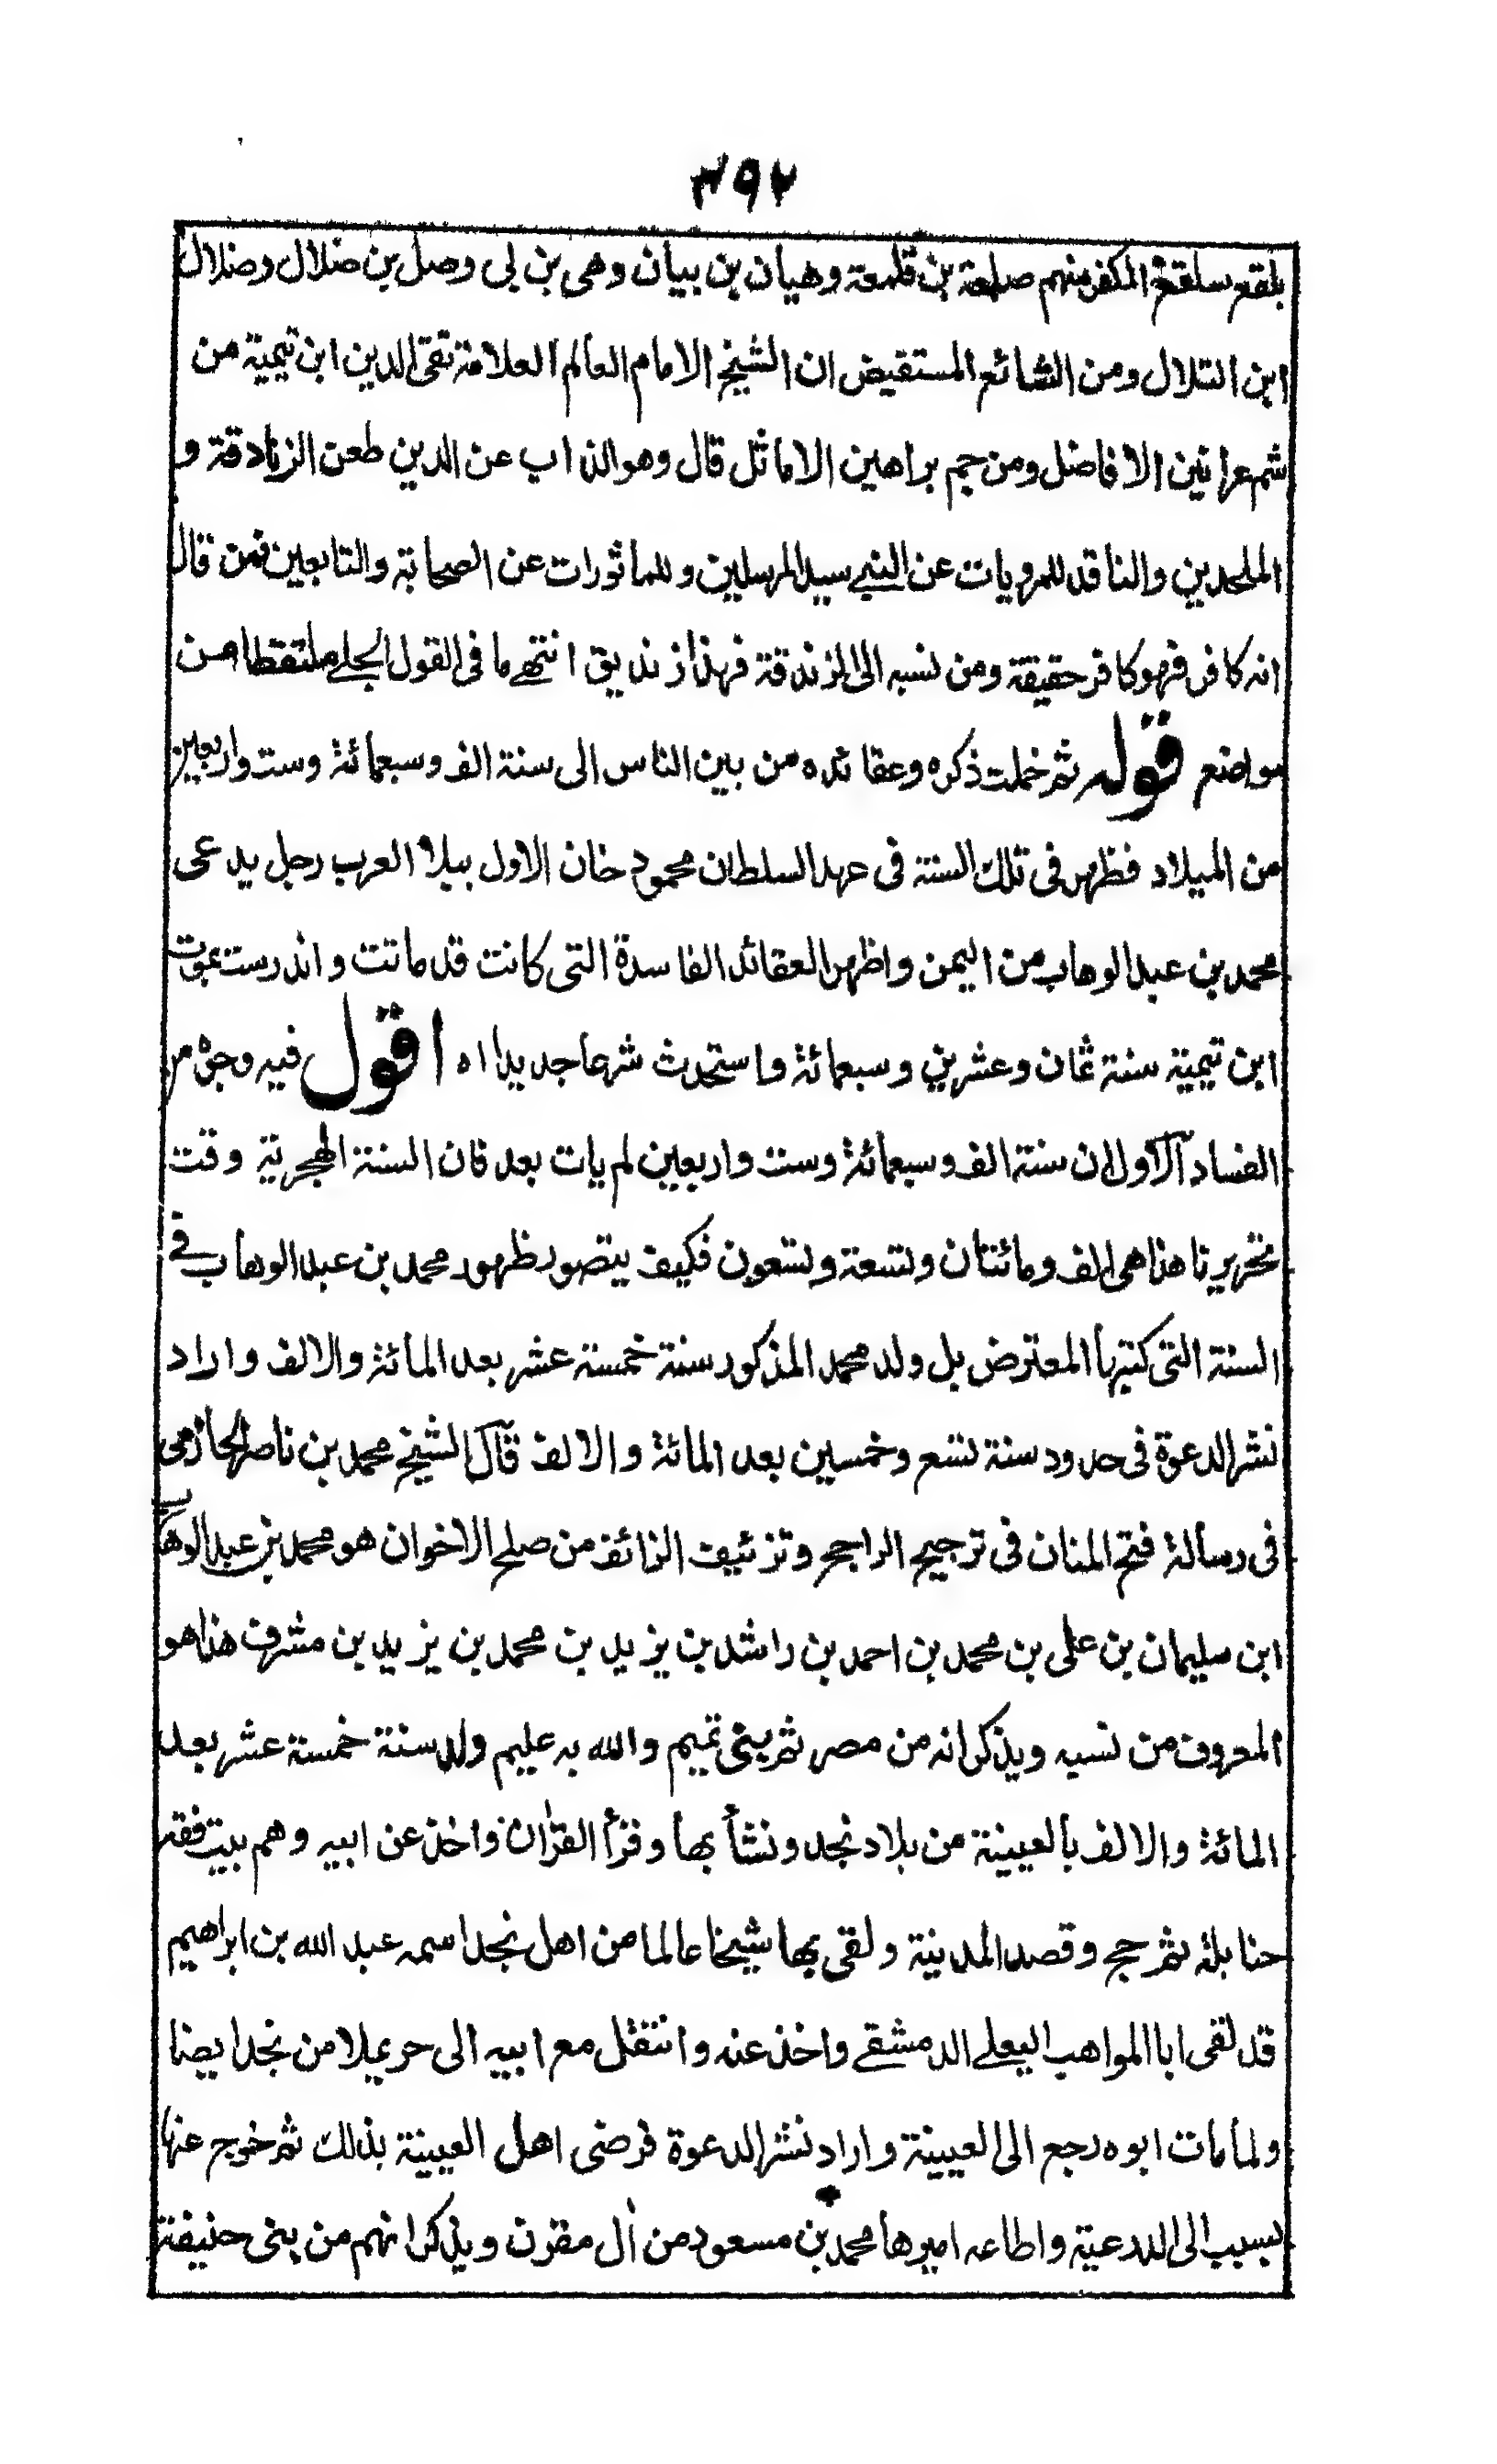 ٤٩٢
بلقع سلقع المكفر منهم صلعة بن قلمعة وهيان بن بيان وهى بن بى وصل بن ضلال وضلال
ابن التلال ومن الشائع المستفيض ان الشيخ الامام العالم العلامة تقى الدين ابن تيمية من
شم عرانين الافاضل ومن جم براهين الاماثل قال وهو الذاب عن الدين طعن الزنادقة و
الملحدين والناقد للمرويات عن النبي سيد المرسلين وللماثورات عن الصحابة والتابعين فمن قال
انه كافر فهو كافر حقيقة ومن نسبه الى الزندقة فهذا زنديق انتهى ما فى القول الجلي ملتقطا من
مواضع قوله ثم خملت ذكره وعقائده من بين الناس الى سنة الف وسبعمائة وست واربعين
من الميلاد فظهر فى تلك السنة فى عهد السلطان محمود خان الاول ببلاد العرب رجل يدعى
محمد بن عبد الوهاب من اليمن واظهر العقائد الفاسدة التى كانت قد ماتت واندرست بموت
ابن تيمية سنة ثمان وعشرين وسبعمائة واستحدث شرعا جديدا اه اقول فيه وجوه من
الفساد الاول ان سنة الف وسبعمائة وست واربعين لم يات بعد فان السنة الهجرية وقت
تحريرنا هذا هى الف ومائتان وتسعة وتسعون فكيف يتصور ظهور محمد بن عبد الوهاب في
السنة التى كتبها المعترض بل ولد محمد المذكور سنة خمسة عشر بعد المائة والالف واراد
نشر الدعوة فى حدود سنة تسع وخمسين بعد المائة والالف قال الشيخ محمد بن ناصر الحازمى
فى رسالة فتح المنان فى ترجيح الراجح وتزئيف الزائف من صلح الاخوان هو محمد بن عبد الوهاب
ابن سليمان بن على بن محمد بن احمد بن راشد بن يزيد بن محمد بن يزيد بن مشرف هذا هو
المعروف من نسبه ويذكر انه من مصر ثم بنى تميم والله به عليم ولد سنة خمسة عشر بعد
المائة والالف بالعيينة من بلاد نجد ونشأ بها وقرأ القرآن واخذ عن ابيه وهم بيت فقه
حنابلة ثم حج وقصد المدينة ولقى بها شيخا عالما من اهل نجد اسمه عبد الله بن ابراهيم
قد لقى ابا المواهب البعلي الدمشقي واخذ عنه وانتقل مع ابيه الى حريملا من نجد ايضا
ولما مات ابوه رجع الى العيينة واراد نشر الدعوة فرضى اهل العيينة بذلك ثم خرج عنها
بسبب الى الدرعية واطاعه اميرها محمد بن مسعود من آل مقرن ويذكر انهم من بنى حنيفة